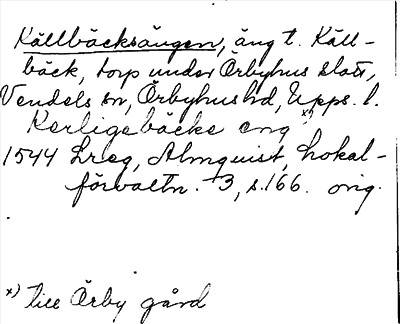 Källbäcksängen, äng t. Käll-
bäck, torp under Örbyhus slott,
Vendels sn, Örbyhus hd, Upps. l.
Kerligebäcks eng x)
1544 Lreg, Almquist, Lokal-
förvaltn. 3, s. 166. orig.
x) till Örby gård